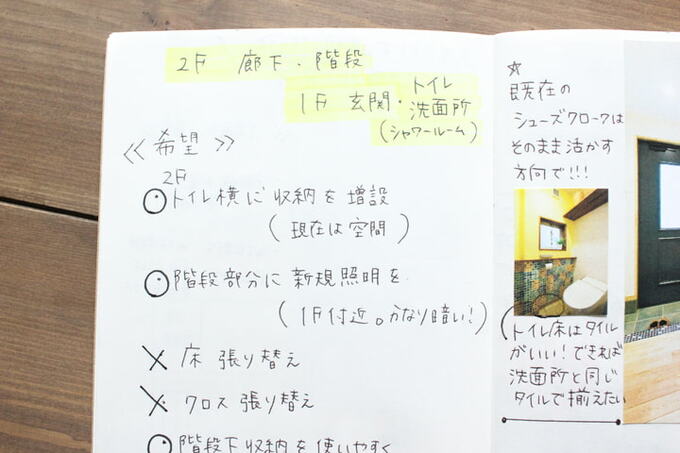 2F 廊下・階段
1F 玄関・トイレ
洗面所
(シャワールーム)
≪希望≫
2F
トイレ横に収納を増設
(現在は空間)
階段部分に新規照明を
(1F付近。かなり暗い!)
× 床張り替え
× クロス張り替え
階段下収納を使いやすく
☆
既在の
シューズクロークは
そのまま活かす
方向で!!!
(トイレ床はタイル
がいい!できれば
洗面所と同じ
タイルで揃えたい